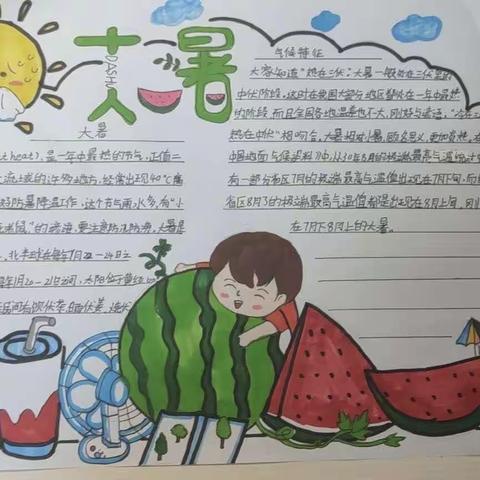 大暑
DASHU
气候特征
大家知道“热在三伏”。大暑一般处在三伏里的
中伏阶段,这时在我国大部分地区都处在一年中最热
的阶段,而且全国各地温差也不大,刚好与谚语:“冷在三
热在中伏”相吻合。大暑相对小暑,顾名思义,更加炎热。在
中国地面气候资料》中,以30年8月的极端最高气温
有一部分省区7月的极端最高气温值出现在7月下旬,而
省区8月的极端最高气温值都是出现在8月上旬,刚
在7月下8月上的大暑。
大暑
t heat),是一年中最热的节气,正值二
流域的许多地方,经常出现40℃高
好防暑降温工作。这个节气雨水多,有“小
鼠”的谚语,要注意防汛防涝。大暑是
,北半球在每年7月22-24日之
年1月20-21日之间,太阳位于黄经
民间有饮伏茶,晒伏姜,烧伏